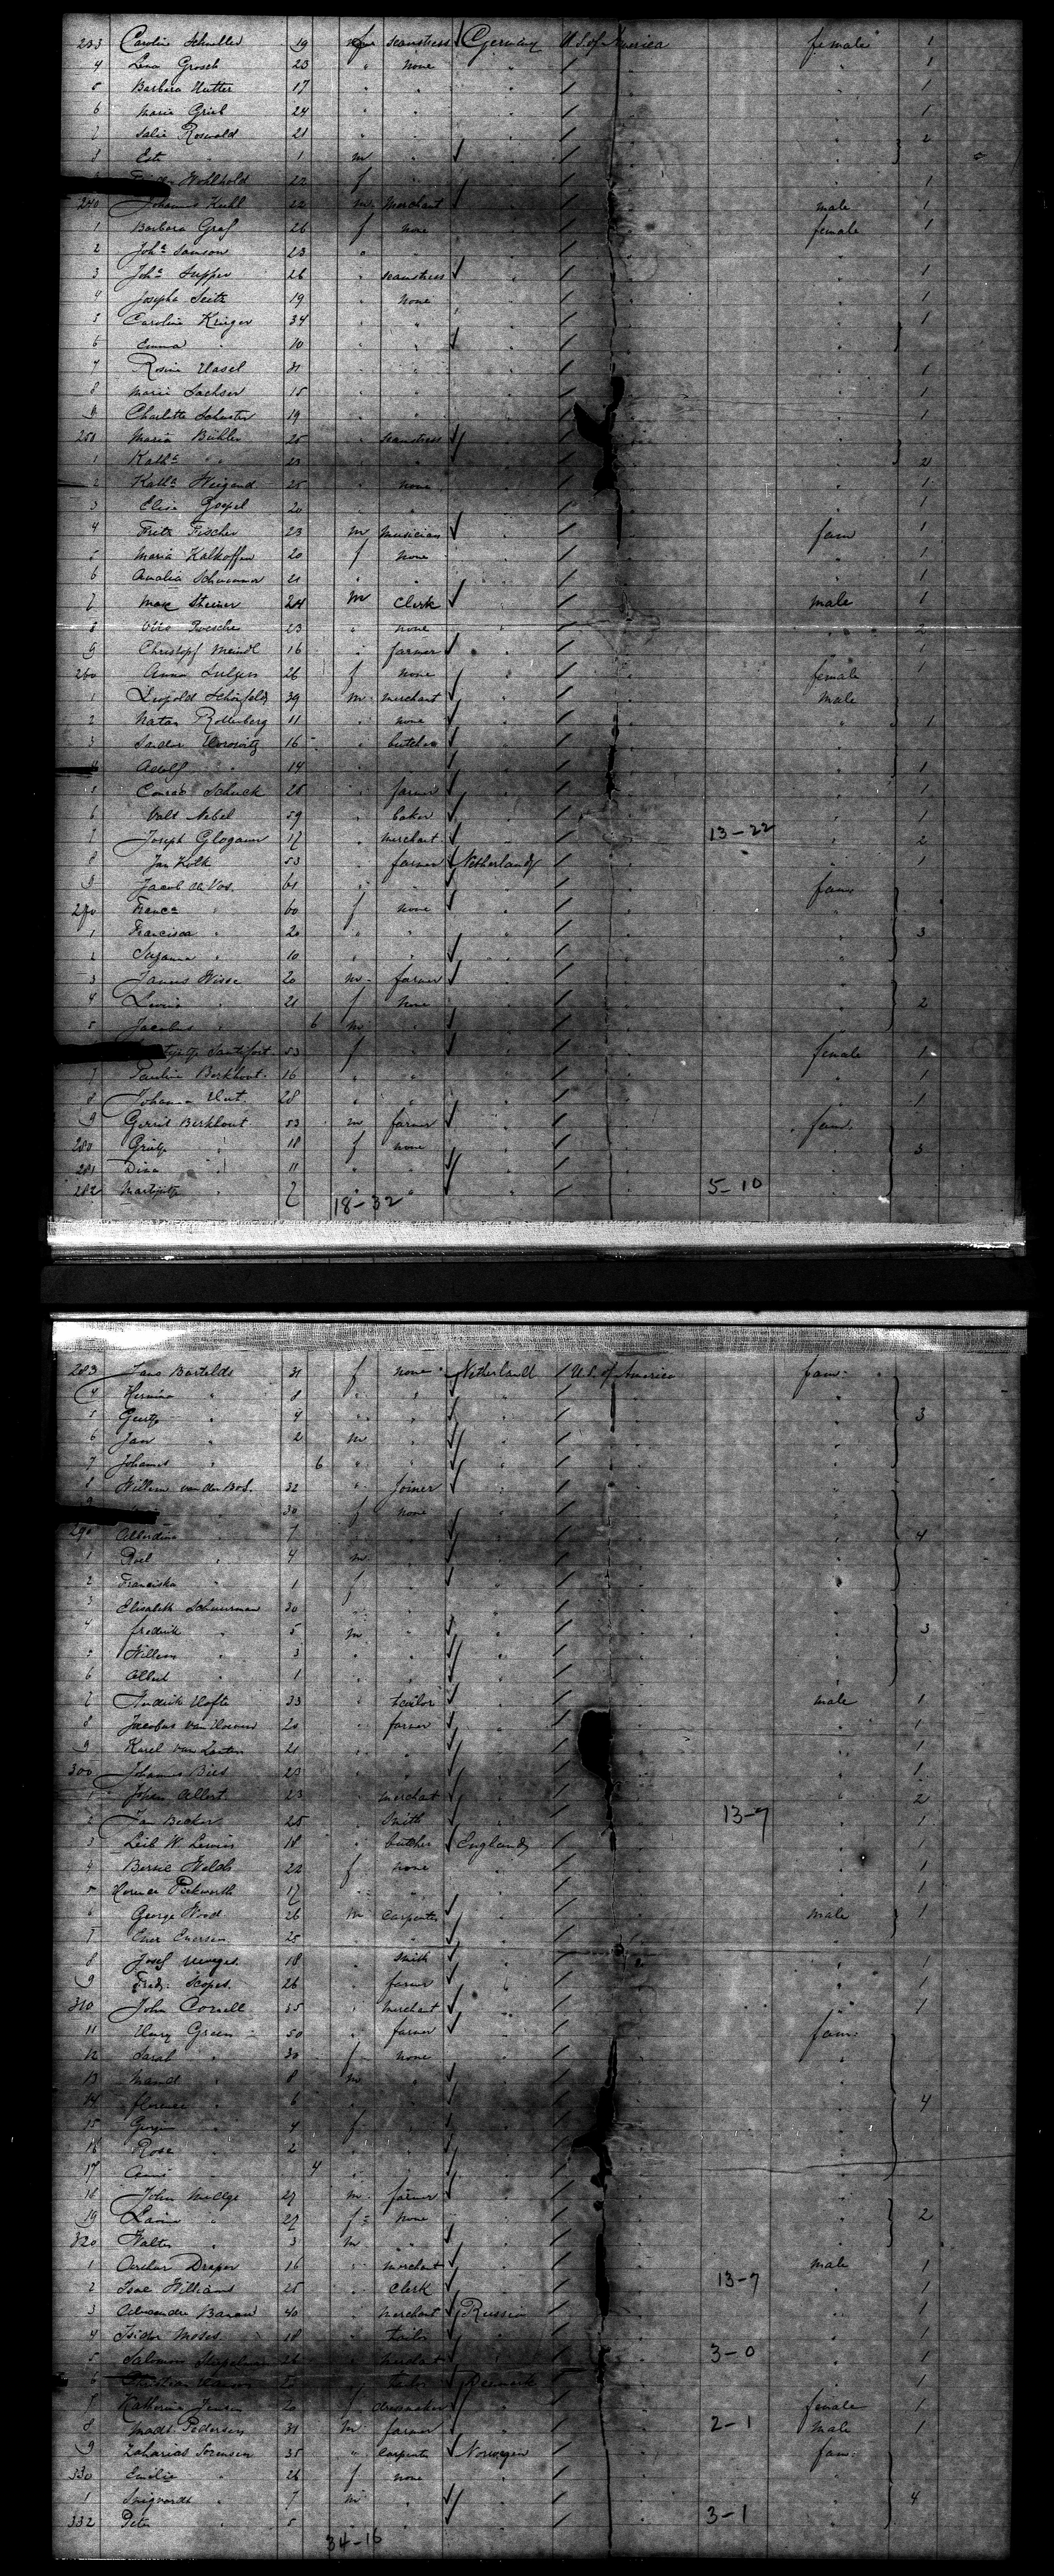 233 Caroline Schneller 19 seamstress Germany U.S. of America female 1
4 Lena Grosch 23 " none " 1
5 Barbara Hutter 17 "
6 Maria Grieb 24 " 1
7 Salie Roswald 21 " 2
8 1 m
Wohlhold 22 f 1
240 Johannes Kuhl 22 m merchant male 1
1 Barbara Graf 26 f none female 1
2 Joha Samson 23 "
3 Joha Supper 26 " seamstress 1
4 Josepha Seitz 19 " none 1
5 Caroline Krieger 34 " 1
6 Emma " 10 "
7 Rosina Hasel 31 " 1
8 Marie Sachser 15 " 1
9 Charlotte Schuster 19 "
250 Maria Bühler 25 " seamstress
1 Katha " 23 " 2
2 Katha Weigand 25 " none 1
3 Elise Goepel 20 " 1
4 Fritz Fischer 23 m musician fam 1
5 Maria Kalkoffen 20 f none 1
6 Amalia 21 " 1
7 Max Steiner 24 m Clerk male 1
8 Otto 23 " none 2
9 Christopf Meindl 16 " farmer 1
260 Anna 26 f none female 1
1 Leopold Schönfeld 39 m merchant male
2 Natan Rollenberg 11 " none 1
3 Sandor Horowitz 16 " butcher
4 Adolf " 14 " 1
5 Conrad Schuck 25 " farmer 1
6 Valt Nebel 59 " baker 1
7 Joseph Glogauer 17 " merchant 13-22 2
8 Jan Kolk 53 " farmer Netherland 1
9 Jacob de Vos 61 " fam
270 Franca " 60 f none
1 Francisca " 20 " 3
2 Suzanna " 10 "
3 Jannis Wisse 20 m farmer
4 Levina " 21 f none 2
5 Jacobus " 6 m
Santifort 53 f female 1
7 Paulina Berkhout 16 " 1
8 Johanna 28 " 1
9 Gerrit Berkhout 53 m farmer fam
280 Grietje " 18 f none 3
281 Dina " 11 "
282 Martijntje " 7 " 5-10
18-32
283 Jans Bartelds 31 f none Netherland U.S. of America fam
4 Hermina " 8 "
5 Geertje " 4 " 3
6 Jan " 2 m
7 Johannes " 6 "
8 Willem van den Bos 32 " joiner
9 30 f none
290 Alberdina " 7 " 4
1 Roel " 4 m
2 Franciska " 1 f
3 Elisabeth Schuurman 30 "
4 Frederik " 5 m 3
5 Willem " 3 "
6 Albert " 1 "
7 Hendrik Hofte 33 " tailor male 1
8 Jacobus van Hoeven 20 " farmer 1
9 Karel van Zanten 21 " 1
300 Johannes Bies 23 " 1
1 Johan Albert 23 " merchant 2
2 Jan Becker 25 " Smith 13-7 1
3 Leib W. Lewin 18 " butcher England
4 Bessie Welds 22 f none 1
5 Florence Pickworth 17 " 1
6 George Wood 26 m carpenter male 1
7 Ever Eversen 25 "
8 Josef 18 " Smith 1
9 Fred. Scopes 26 " farmer 1
310 John Cornell 35 " merchant 1
11 Henry Green 50 " farmer fam
12 Sarah " 30 f none
13 Maud " 8 m
14 Florence " 6 " 4
15 Georgina " 4 f
16 Rose " 2 "
17 Annie " 4 "
18 John 27 m farmer
19 Lavina " 27 f none 2
320 Walter " 3 m
1 Arthur Draper 16 " merchant male 1
2 Isac Williams 25 " Clerk 13-7 1
3 Alexander Baran 40 " merchant Russia 1
4 Isidor Moses 18 " tailor 1
5 Salomon 26 " merchant 3-0 1
6 Christian Hansen 25 " tailor Denmark 1
7 Katherina Jensen 20 f dressmaker female 1
8 Mads Pedersen 31 m farmer 2-1 male 1
9 Zaharias Sorensen 35 " carpenter Norwegen fam
330 Emilie " 26 f none
1 Snigvarda " 7 m 4
332 Peter " 5 " 3-1
34-16